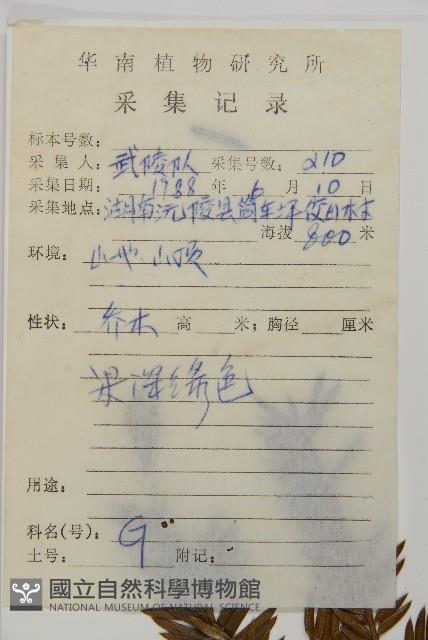 华南植物研究所
采集记录
标本号数：
采集人：武陵队 采集号数：210
采集日期：1988年6月10日
采集地点：湖南沅陵县筒车坪
海拔 800 米
环境：山地山顶
性状：乔木 高 米；胸径 厘米
果深绿色
用途：
科名(号)：G
土号： 附记：
國立自然科學博物館
NATIONAL MUSEUM OF NATURAL SCIENCE